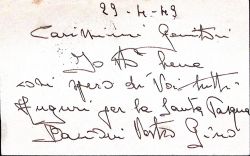 29-4-43
Carissimi Genitori
Io sto bene
così spero di Voi tutti.
Auguri per la Santa Pasqua
Bacioni Vostro Gino